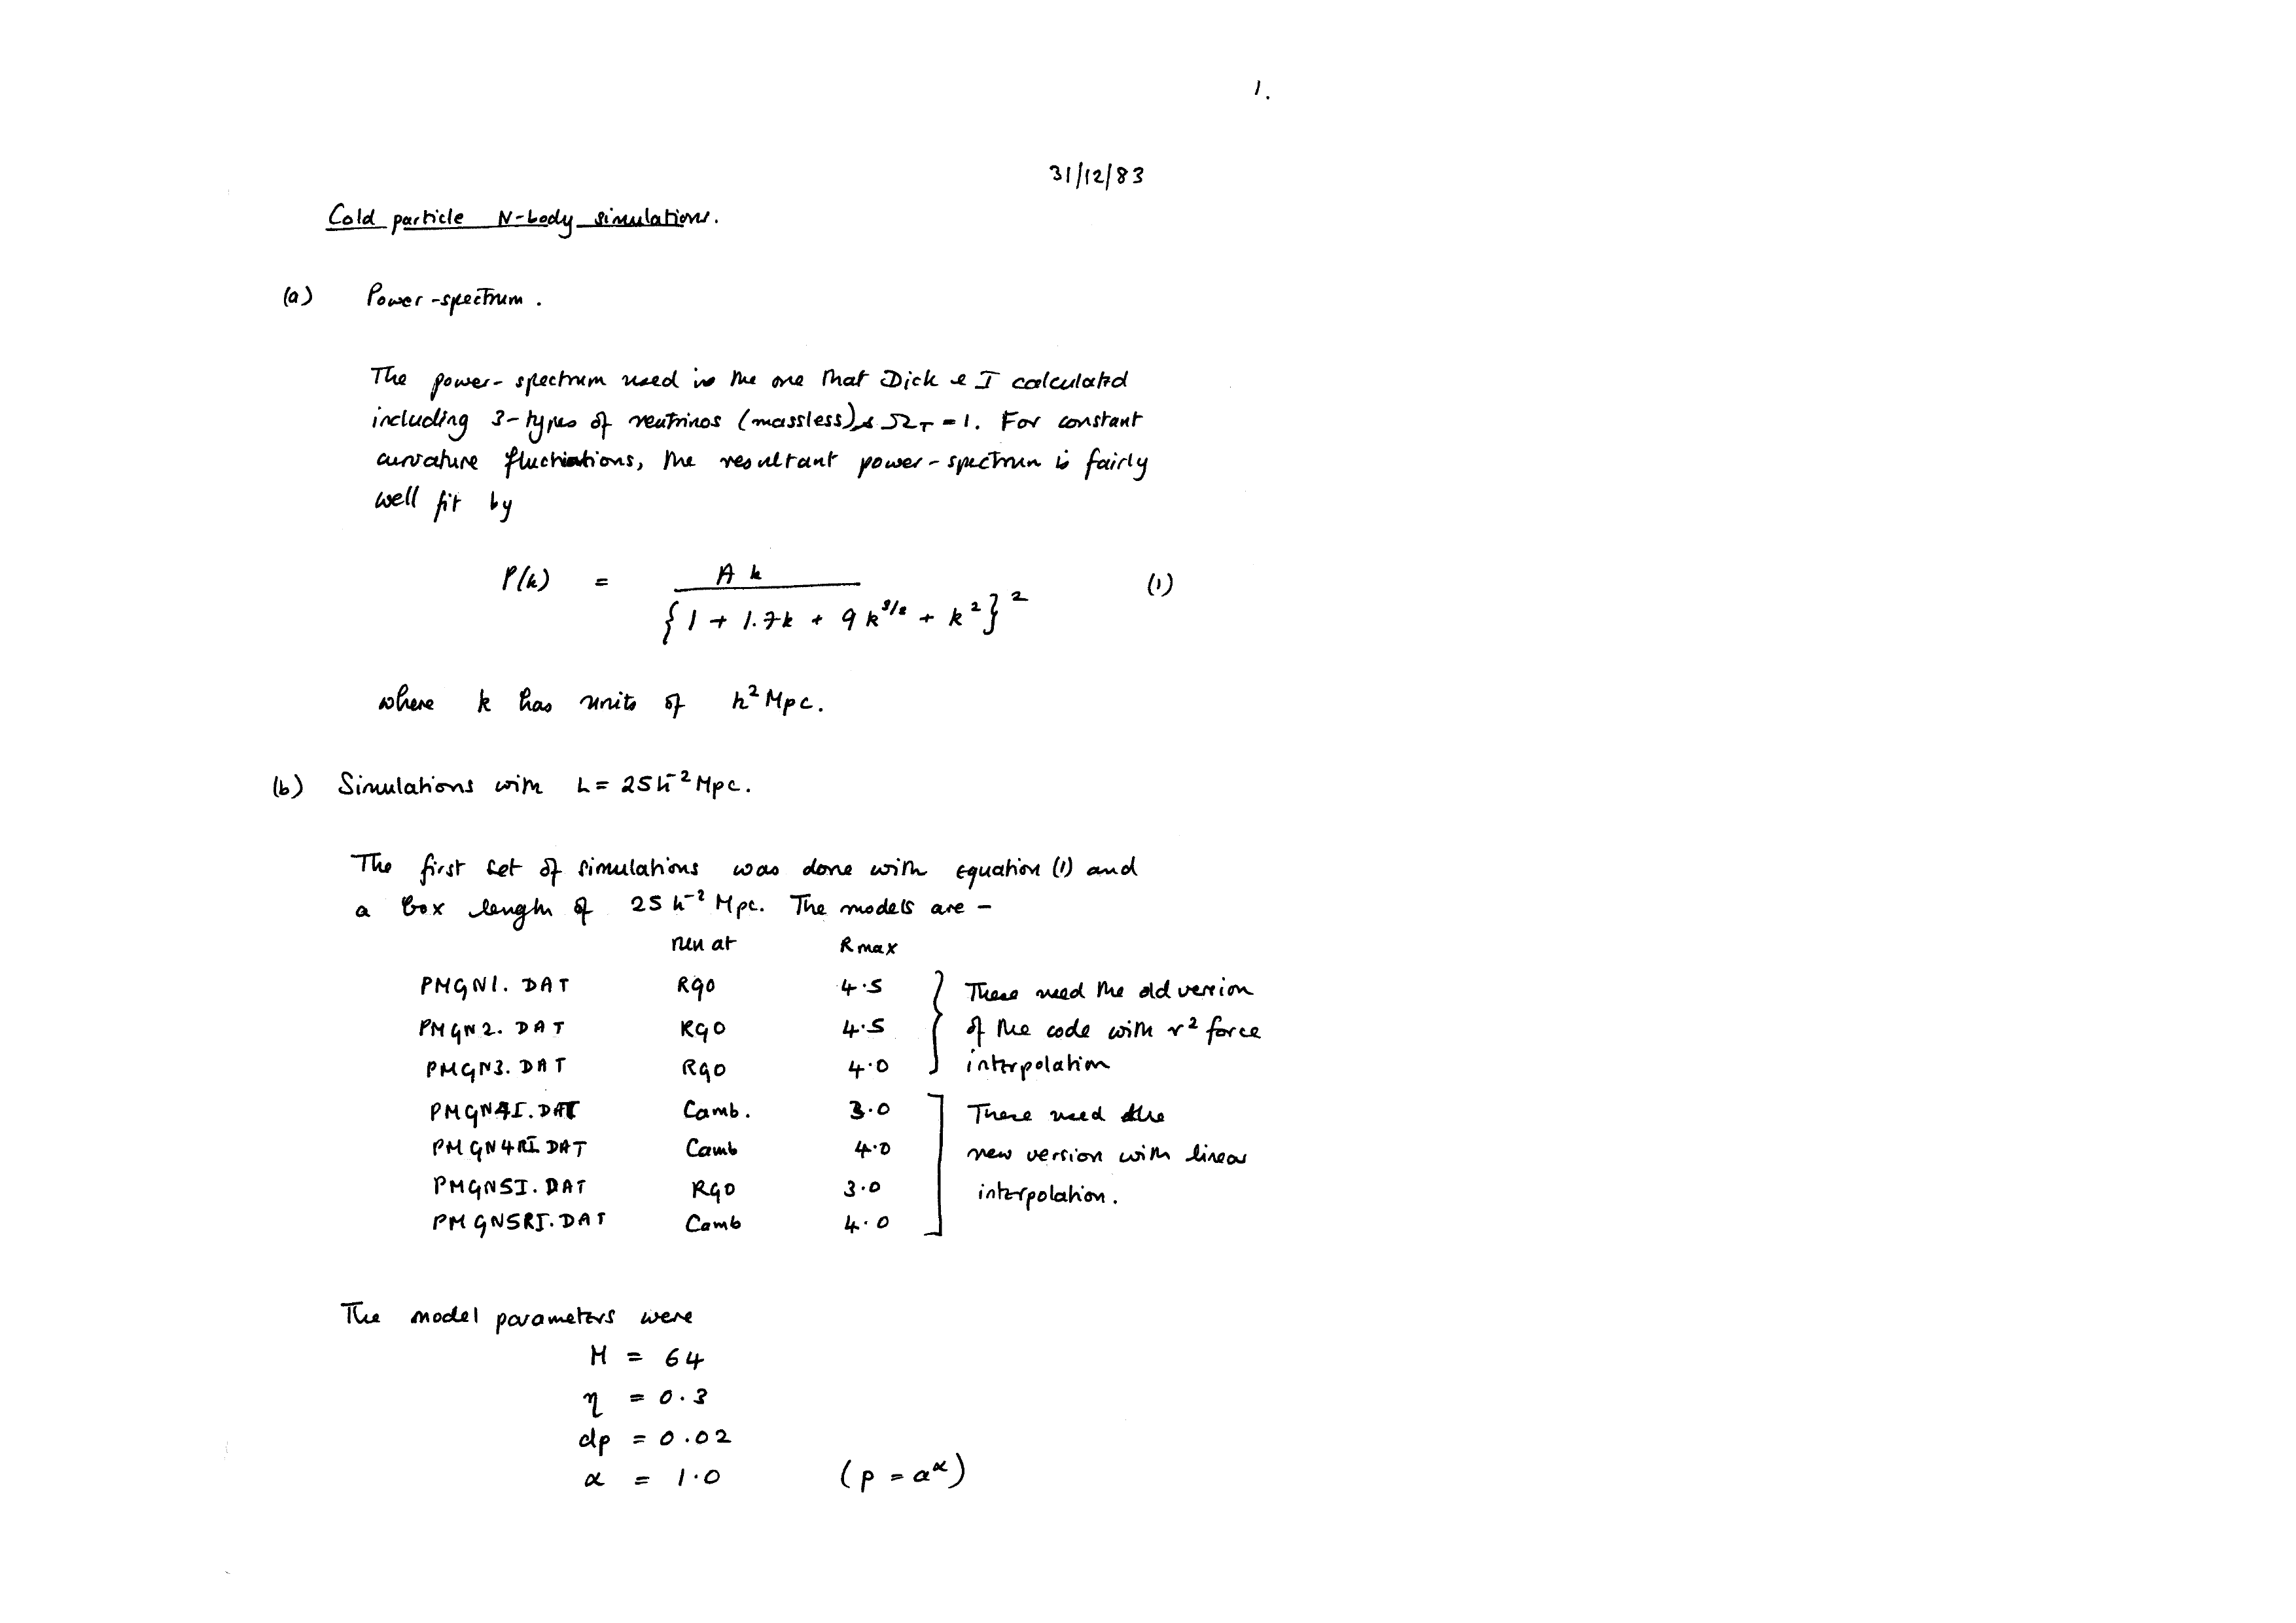 1.
31/12/83
Cold particle N-body simulations.
(a) Power-spectrum.
The power-spectrum used is the one that Dick & I calculated
including 3-types of neutrinos (massless) & Ω_T = 1. For constant
curvature fluctuations, the resultant power-spectrum is fairly
well fit by
P(k) = A k / {1 + 1.7k + 9 k^3/2 + k^2}^2 (1)
where k has units of h^2 Mpc.
(b) Simulations with L = 25 h^-2 Mpc.
The first set of simulations was done with equation (1) and
a box length of 25 h^-2 Mpc. The models are -
run at Rmax
PMGN1.DAT RGO 4.5 These used the old version
PMGN2.DAT RGO 4.5 of the code with r^2 force
PMGN3.DAT RGO 4.0 interpolation
PMGN4I.DAT Camb. 3.0 These used the
PMGN4RI.DAT Camb 4.0 new version with linear
PMGN5I.DAT RGO 3.0 interpolation.
PMGN5RI.DAT Camb 4.0
The model parameters were
M = 64
η = 0.3
dp = 0.02
α = 1.0 (p = a^α)